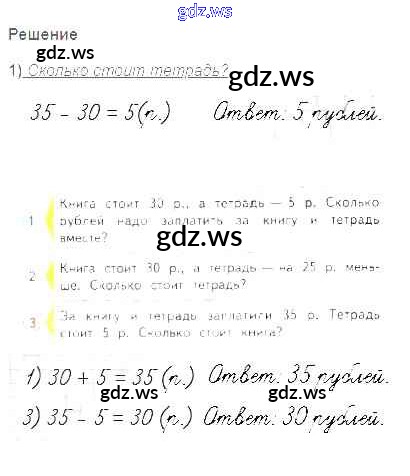 gdz.ws
Решение
gdz.ws
1) Сколько стоит тетрадь?
gdz.ws
35 - 30 = 5(п.) Ответ: 5 рублей.
1 Книга стоит 30 р., а тетрадь — 5 р. Сколько
рублей надо заплатить за книгу и тетрадь
вместе?
gdz.ws
2 Книга стоит 30 р., а тетрадь — на 25 р. мень-
ше. Сколько стоит тетрадь?
3. За книгу и тетрадь заплатили 35 р. Тетрадь
стоит 5 р. Сколько стоит книга?
1) 30 + 5 = 35 (п.) Ответ: 35 рублей.
gdz.ws gdz.ws
3) 35 - 5 = 30 (п.) Ответ: 30 рублей.
gdz.ws